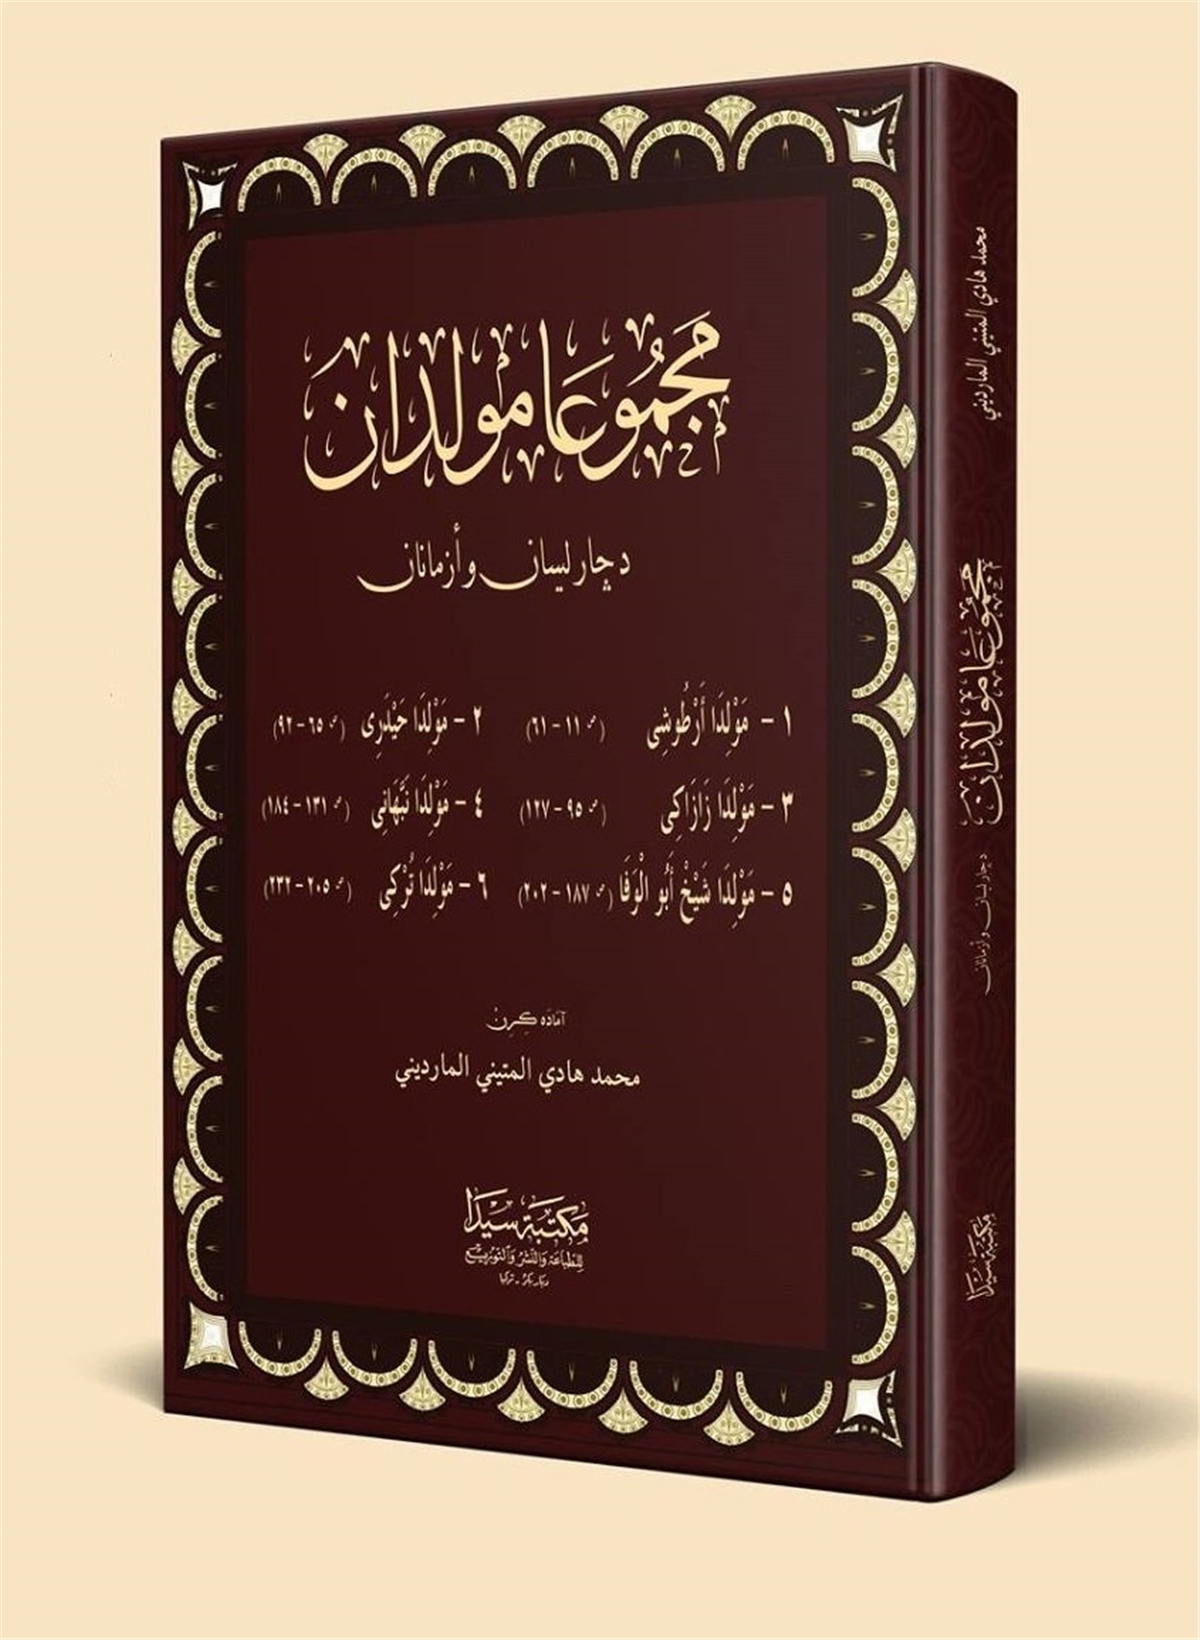 مَجْمُوعَا مولدان
د چار لیسان و أزمانان
١ - مَوْلِدَا أَرْطُوشِى (ص ١١ - ٦١) ٢ - مَوْلِدَا حَيْدَرِى (ص ٦٥ - ٩٢)
٣ - مَوْلِدَا زَازَاكِى (ص ٩٥ - ١٢٧) ٤ - مَوْلِدَا نَبْهَانِى (ص ١٣١ - ١٨٤)
٥ - مَوْلِدَا شَيْخْ أَبُو الْوَفَا (ص ١٨٧ - ٢٠٢) ٦ - مَوْلِدَا تُرْكِى (ص ٢٠٥ - ٢٣٢)
آماده كِرِنْ
محمد هادي المتيني المارديني
مكتبة سيدا
للطباعة والنشر والتوزيع
ديار بكر - تركيا
محمد هادي المتيني المارديني
مجموعا مولدان
د چار لیسان و أزمانان
مكتبة سيدا